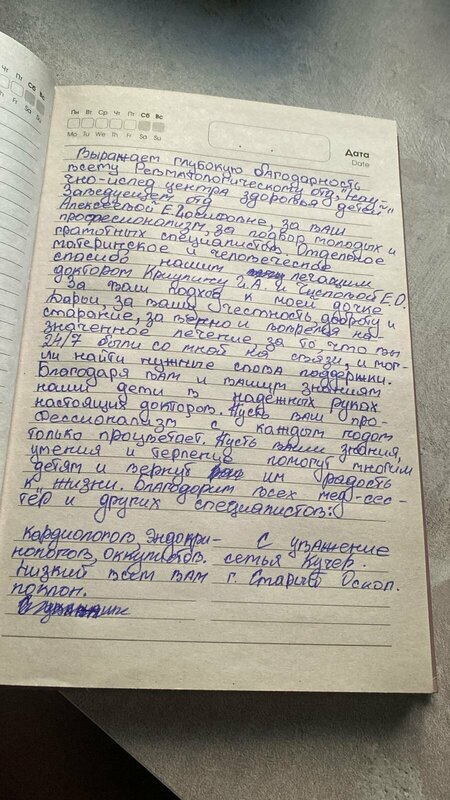 Пн Вт Ср Чт Пт Сб Вс
Mo Tu We Th Fr Sa Su
Дата
Date
Выражает глубокую благодарность
всему Ревматологическому отд. "Науч-
но-ислед центра здоровья детей"
Заведующем отд
Алексеевой Е. Иосифовне, за ваш
профессионализм, за подбор молодых и
грамотных специалистов. Отдельное
материнское и человеческое
спасибо нашим лечащим
докторам Криулину И.А. и Щелоповой Е.О.
За ваш подход к моей дочке
Дарьи, за вашу честность, доброту и
старание, за верно и вовремя на-
значенное лечение, за то что вы
24/7 были со мной на связи, и мог-
ли найти нужные слова поддержки.
Благодаря вам и вашим знаниям
наши дети в надежных руках
настоящих докторов. Пусть ваш про-
фессионализм с каждым годом
только процветает. Пусть ваши знания,
умения и терпение помогут многим
детям и вернут им радость
к жизни. Благодарим всех мед-сес-
тёр и других специалистов:
Кардиологов Эндокри-
нологов, окулистов.
Низкий всем вам
поклон.
С уважение
семья Кучер.
г. Старый Оскол.